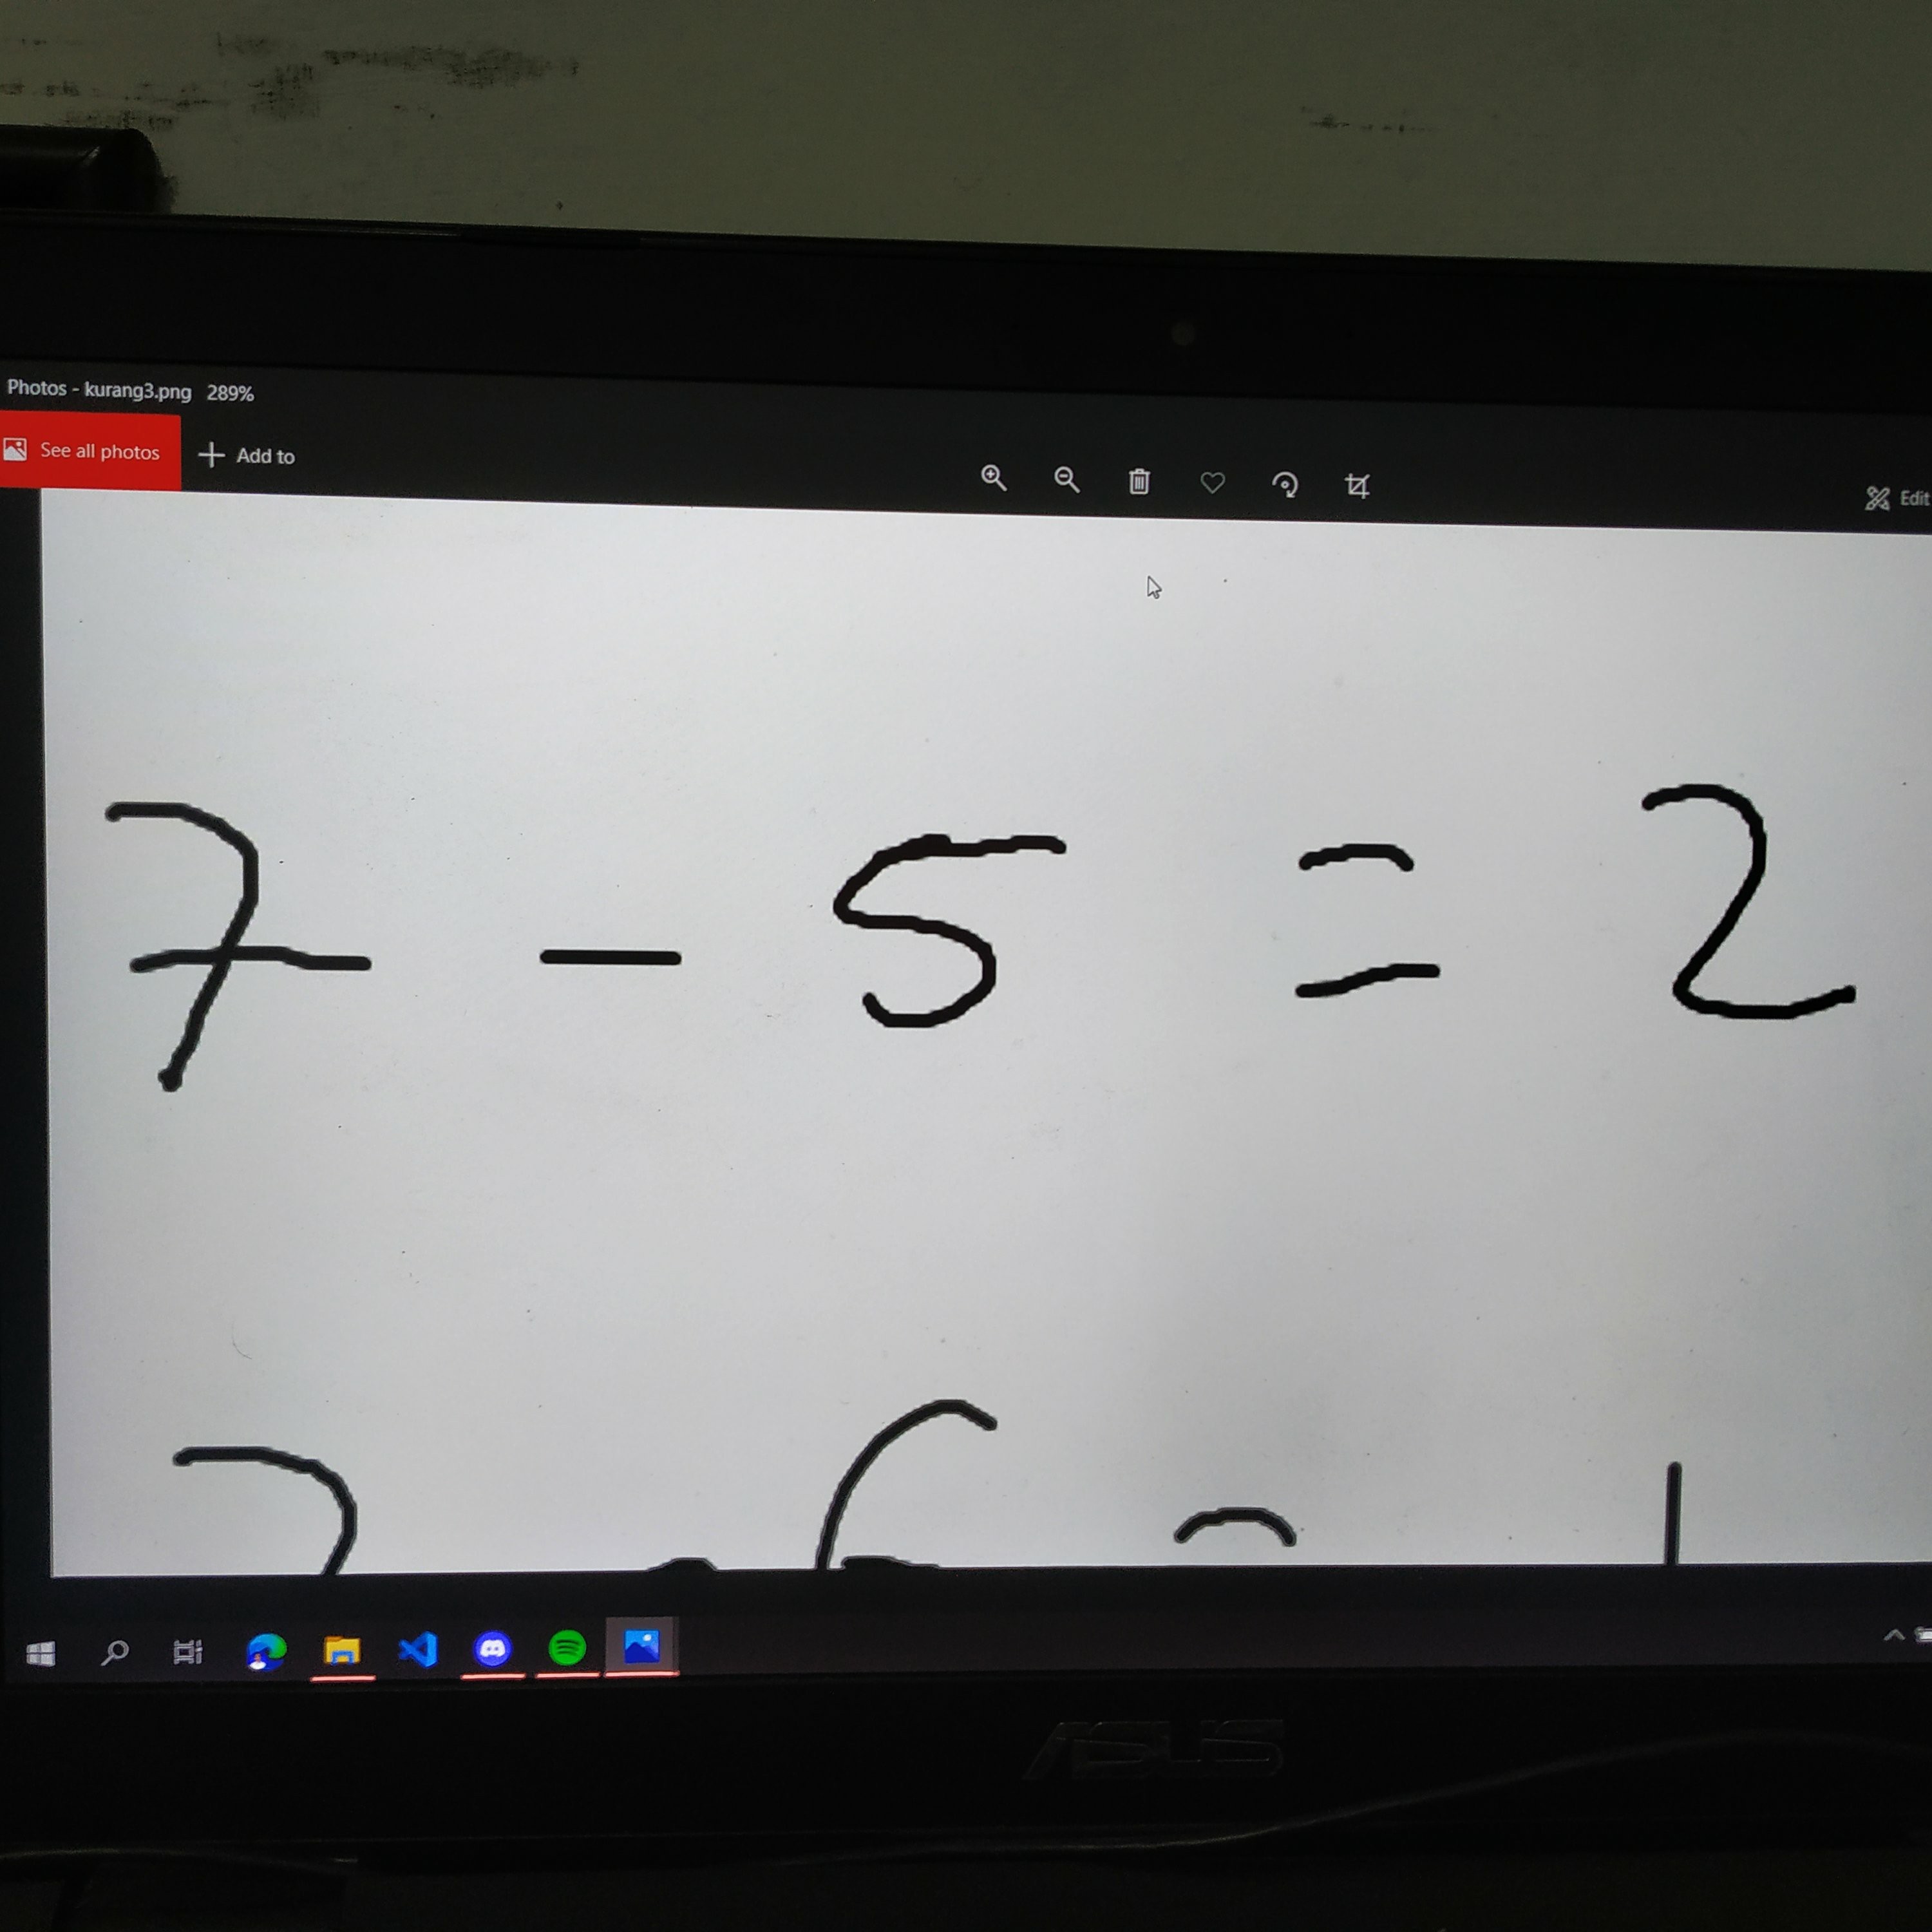 Photos - kurang3.png 289%
See all photos
Add to
Edit
7 - 5 = 2
ASUS